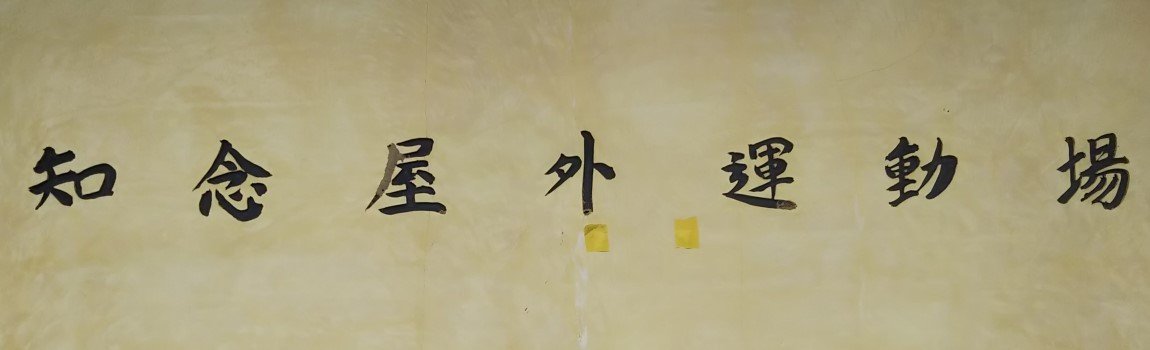 知念屋外運動場